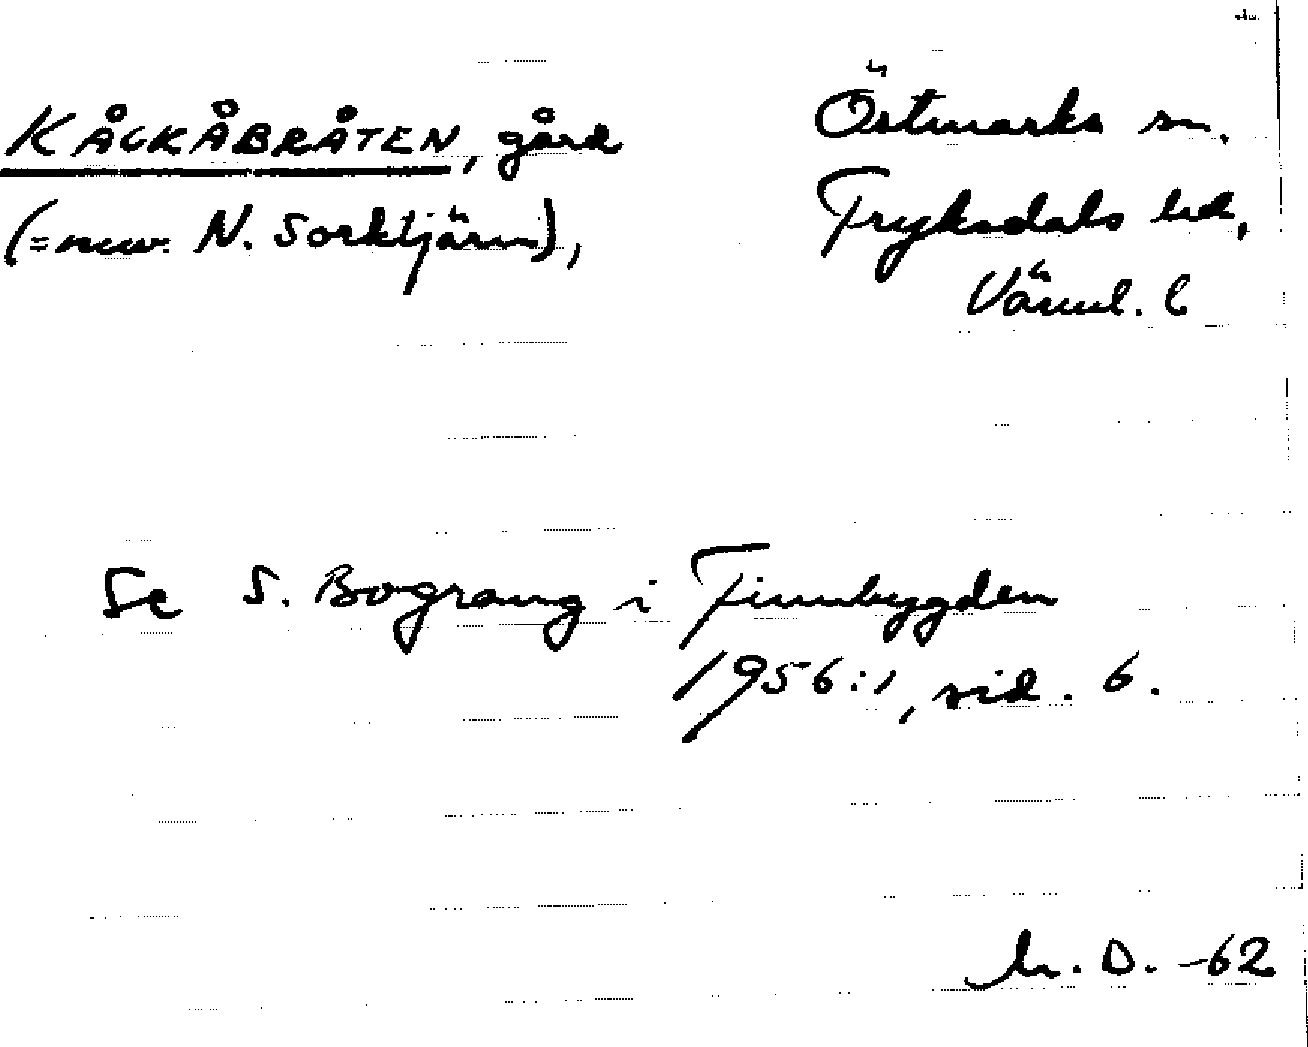 KÅLKÅBRÅTEN, gård
(=nuv. N. Sorktjärn),
Östmarks sn,
Fryksdals hd,
Värml. l
Se S. Bograng i Finnbygden
1956:1, sid. 6.
h. D. -62